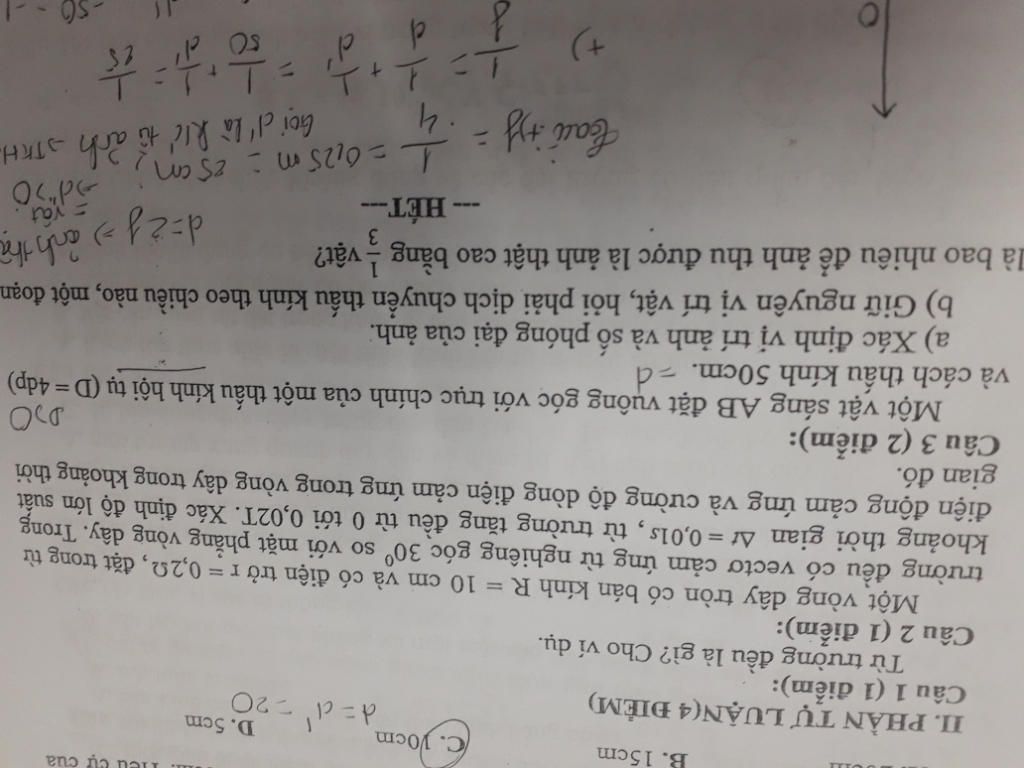 B. 15cm
C. 10cm
D. 5cm
d = d' = 20
II. PHẦN TỰ LUẬN(4 ĐIỂM)
Câu 1 (1 điểm):
Từ trường đều là gì? Cho ví dụ.
Câu 2 (1 điểm):
Một vòng dây tròn có bán kính R = 10 cm và có điện trở r = 0,2Ω, đặt trong từ
trường đều có vectơ cảm ứng từ nghiêng góc 30⁰ so với mặt phẳng vòng dây. Trong
khoảng thời gian Δt = 0,01s, từ trường tăng đều từ 0 tới 0,02T. Xác định độ lớn suất
điện động cảm ứng và cường độ dòng điện cảm ứng trong vòng dây trong khoảng thời
gian đó.
Câu 3 (2 điểm):
D>0
Một vật sáng AB đặt vuông góc với trục chính của một thấu kính hội tụ (D = 4dp)
và cách thấu kính 50cm. = d
a) Xác định vị trí ảnh và số phóng đại của ảnh.
b) Giữ nguyên vị trí vật, hỏi phải dịch chuyển thấu kính theo chiều nào, một đoạn
là bao nhiêu để ảnh thu được là ảnh thật cao bằng 1/3 vật?
d = 2f => ảnh
= vật
=> d' > 0
--- HẾT---
= 1/4 = 0,25 m = 25 cm
Gọi d' là k/c từ ảnh → TKH
+) 1/f = 1/d + 1/d' = 1/50 + 1/d' = 1/25
O